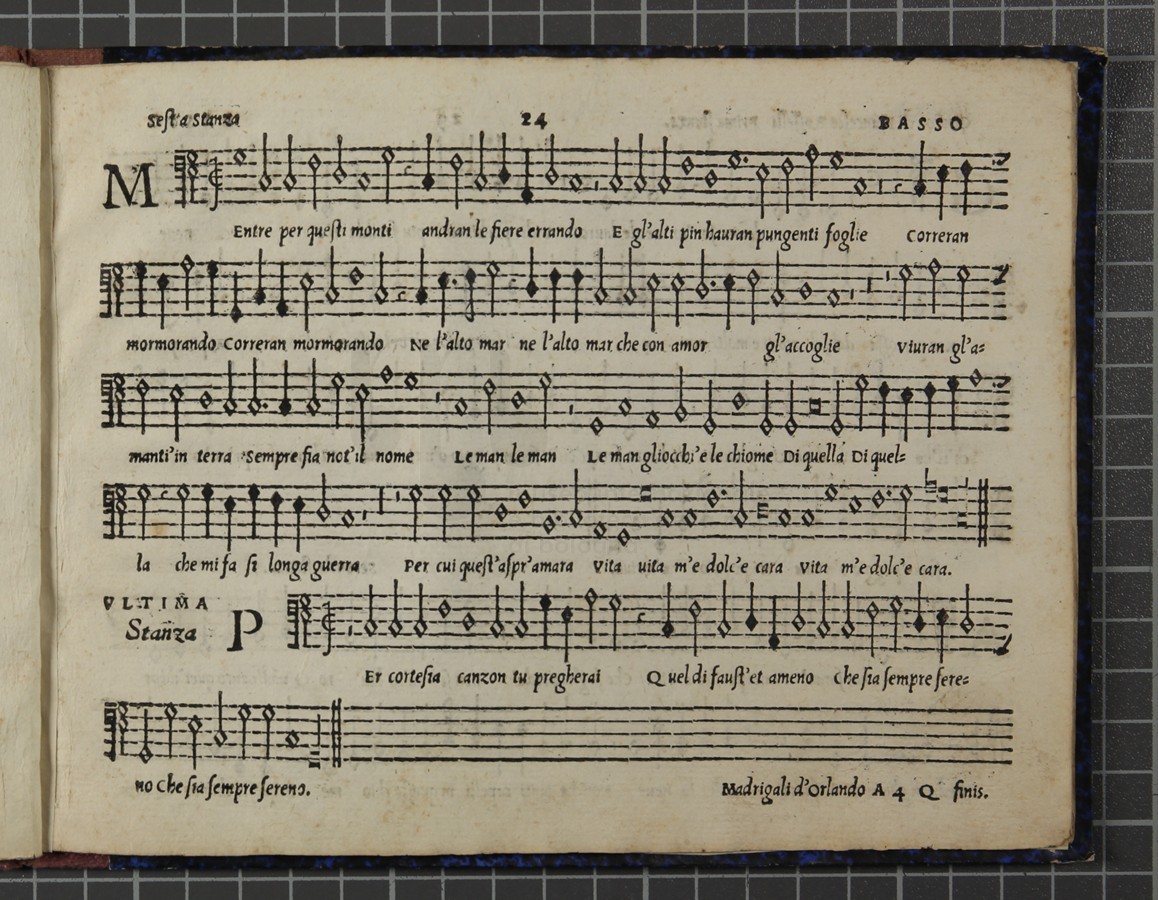 Sesta Stanza 24 BASSO
M
Entre per questi monti andran le fiere errando E gl'alti pin hauran pungenti foglie Correran
mormorando Correran mormorando Ne l'alto mar ne l'alto mar che con amor gl'accoglie Viuran gl'a=
manti'in terra Sempre fia not'il nome Le man le man Le man gliocchi'e le chiome Di quella Di quel=
la che mi fa si longa guerra Per cui quest'aspr'amara Vita uita m'e dolc'e cara Vita m'e dolc'e cara.
VLTIMA
Stanza P
Er cortesia canzon tu pregherai Quel di faust'et ameno Che sia sempre sere=
no Che sia sempre sereno. Madrigali d'Orlando A 4 Q finis.